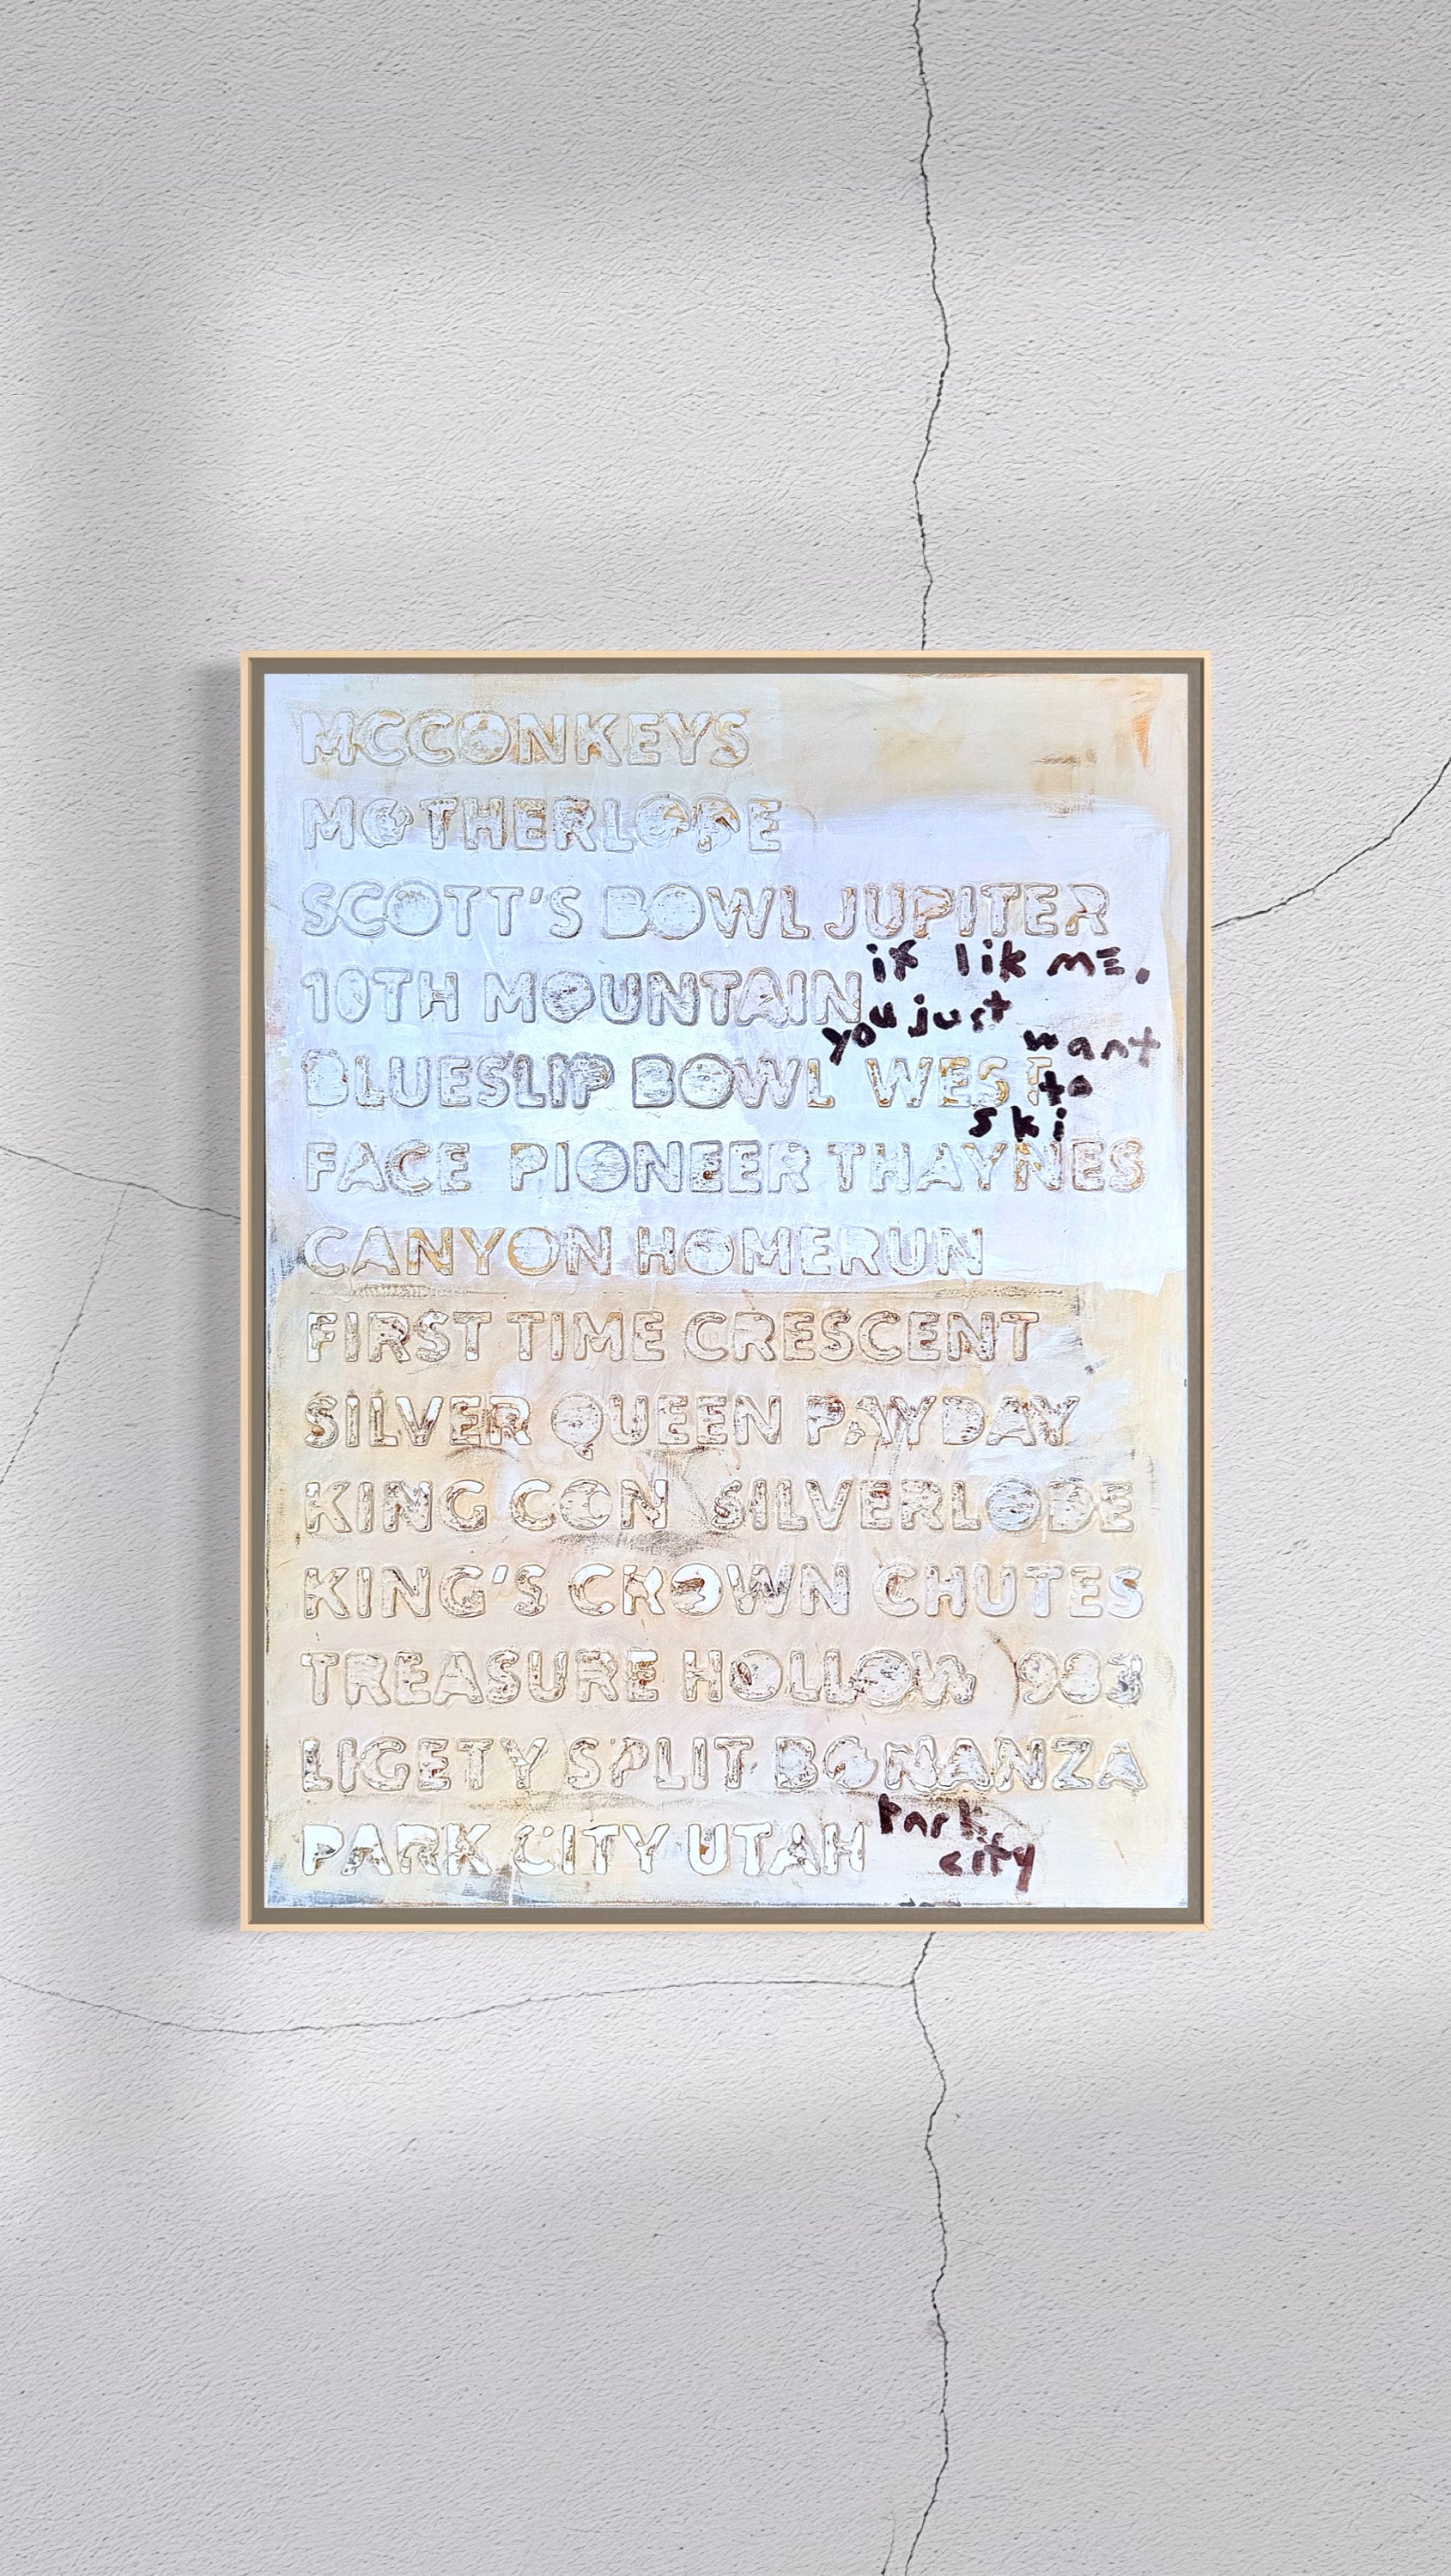 MCCONKEYS
MOTHERLODE
SCOTT'S BOWL JUPITER
if lik ME.
10TH MOUNTAIN
you just
want
BLUESLIP BOWL WEST
to
ski
FACE PIONEER THAYNES
CANYON HOMERUN
FIRST TIME CRESCENT
SILVER QUEEN PAYDAY
KING CON SILVERLODE
KING'S CROWN CHUTES
TREASURE HOLLOW 1983
LIGETY SPLIT BONANZA
PARK CITY UTAH
Park
city